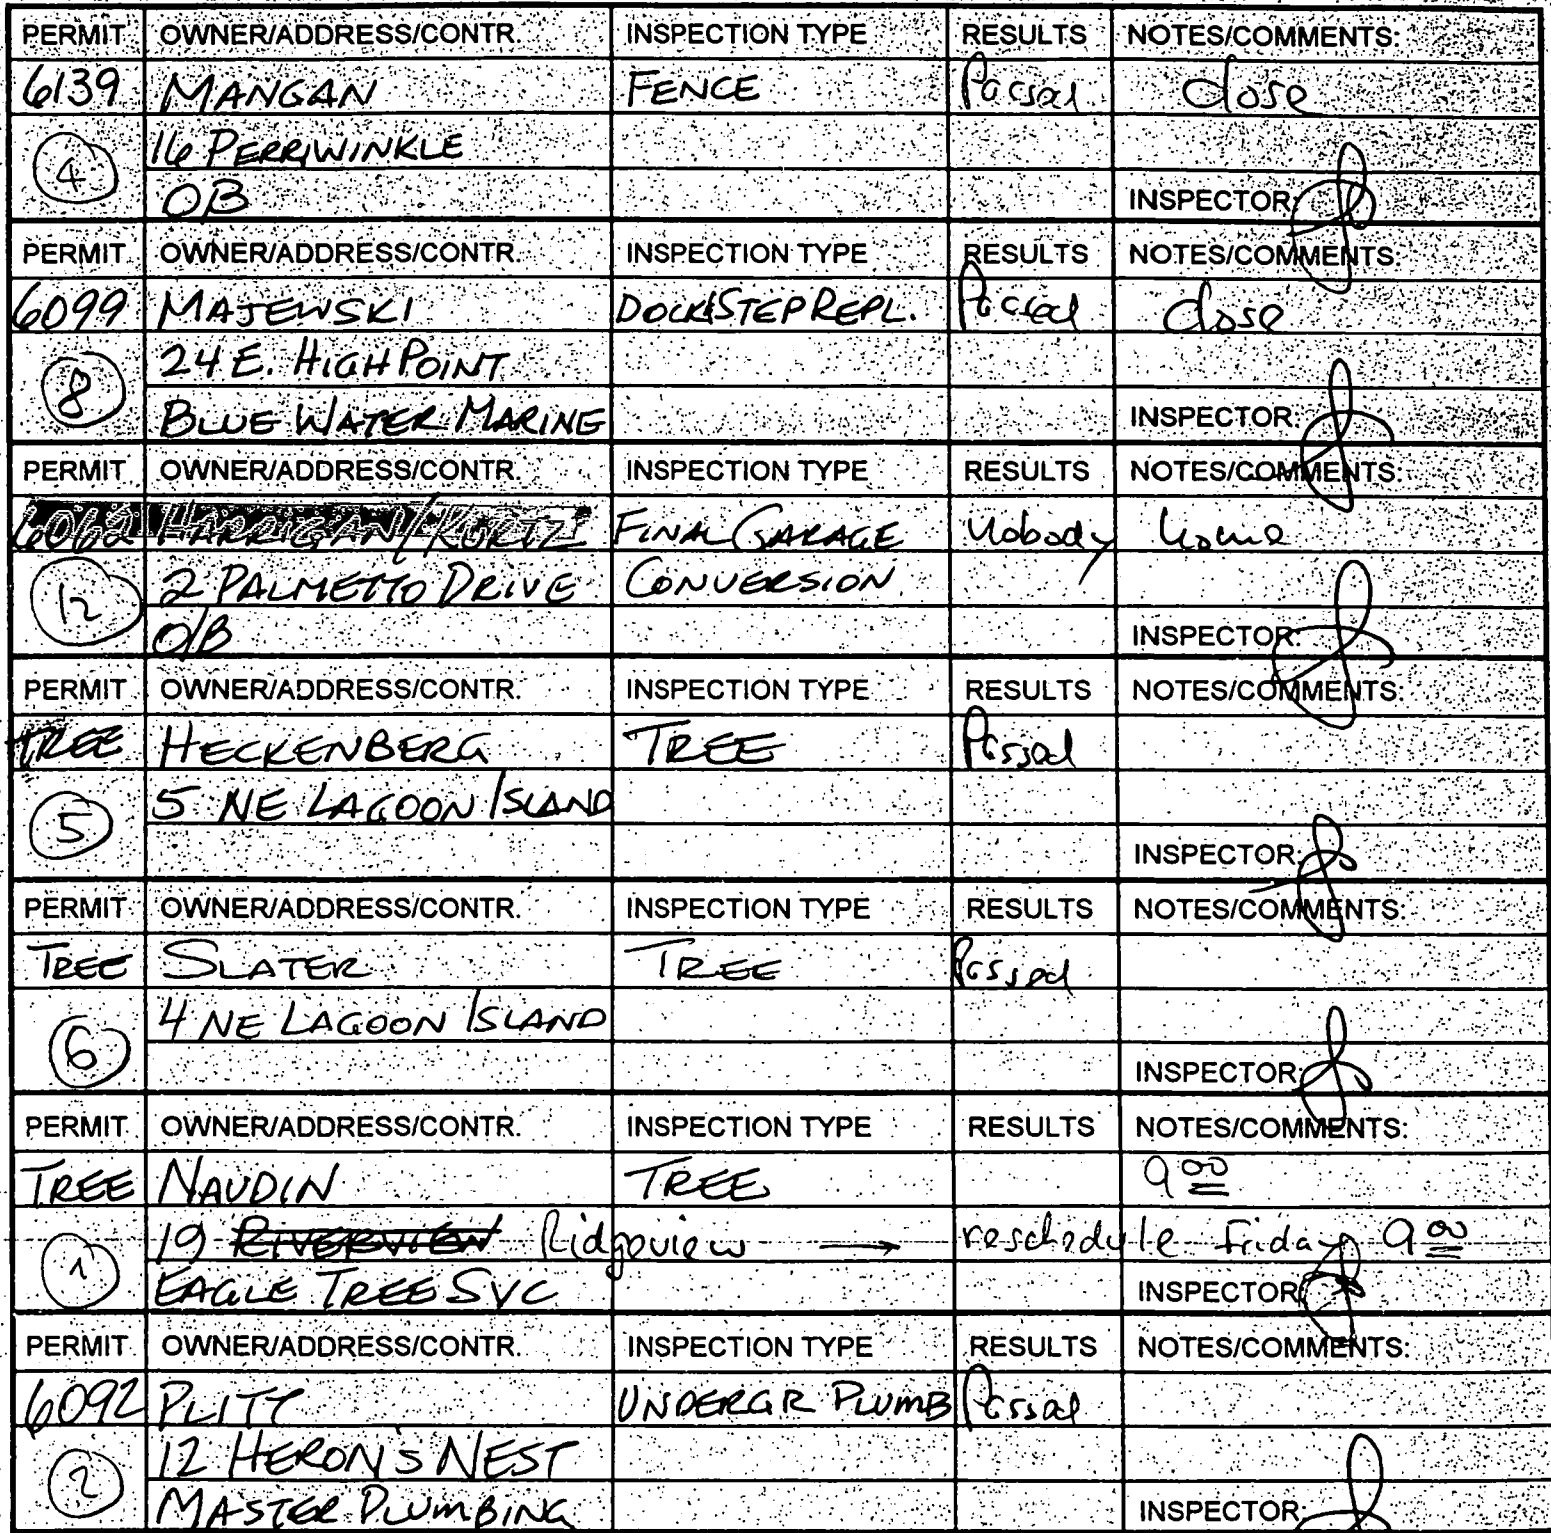 PERMIT OWNER/ADDRESS/CONTR. INSPECTION TYPE RESULTS NOTES/COMMENTS:
6139 MANGAN FENCE Passed close
4 16 PERRIWINKLE
OB INSPECTOR:
PERMIT OWNER/ADDRESS/CONTR. INSPECTION TYPE RESULTS NOTES/COMMENTS:
6099 MAJEWSKI DOCK/STEP REPL. Passed close
8 24 E. HIGH POINT
BLUE WATER MARINE INSPECTOR:
PERMIT OWNER/ADDRESS/CONTR. INSPECTION TYPE RESULTS NOTES/COMMENTS:
6062 HARRIGAN/KURTZ FINAL GARAGE Nobody home
12 2 PALMETTO DRIVE CONVERSION
O/B INSPECTOR:
PERMIT OWNER/ADDRESS/CONTR. INSPECTION TYPE RESULTS NOTES/COMMENTS:
TREE HECKENBERG TREE Passed
5 5 NE LAGOON ISLAND
INSPECTOR:
PERMIT OWNER/ADDRESS/CONTR. INSPECTION TYPE RESULTS NOTES/COMMENTS:
TREE SLATER TREE Passed
6 4 NE LAGOON ISLAND
INSPECTOR:
PERMIT OWNER/ADDRESS/CONTR. INSPECTION TYPE RESULTS NOTES/COMMENTS:
TREE NAUDIN TREE 9 00
1 19 RIVERVIEW Ridgeview → reschedule Friday 9 00
EAGLE TREE SVC INSPECTOR:
PERMIT OWNER/ADDRESS/CONTR. INSPECTION TYPE RESULTS NOTES/COMMENTS:
6092 PLITT UNDERGR PLUMB Passed
2 12 HERON'S NEST
MASTER PLUMBING INSPECTOR: